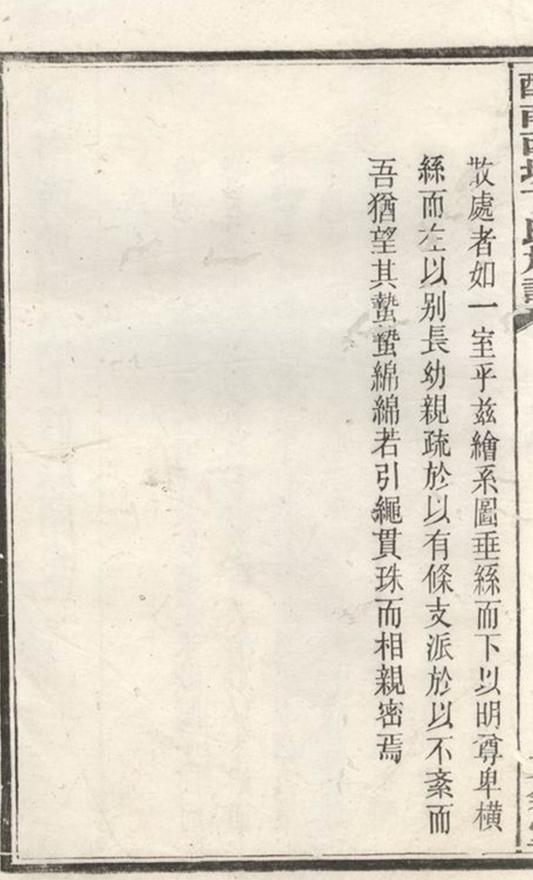 散處者如一室乎茲繪系圖垂絲而下以明尊卑橫
絲而左以别長幼親疏於以有條支派於以不紊而
吾猶望其蟄蟄綿綿若引繩貫珠而相親密焉